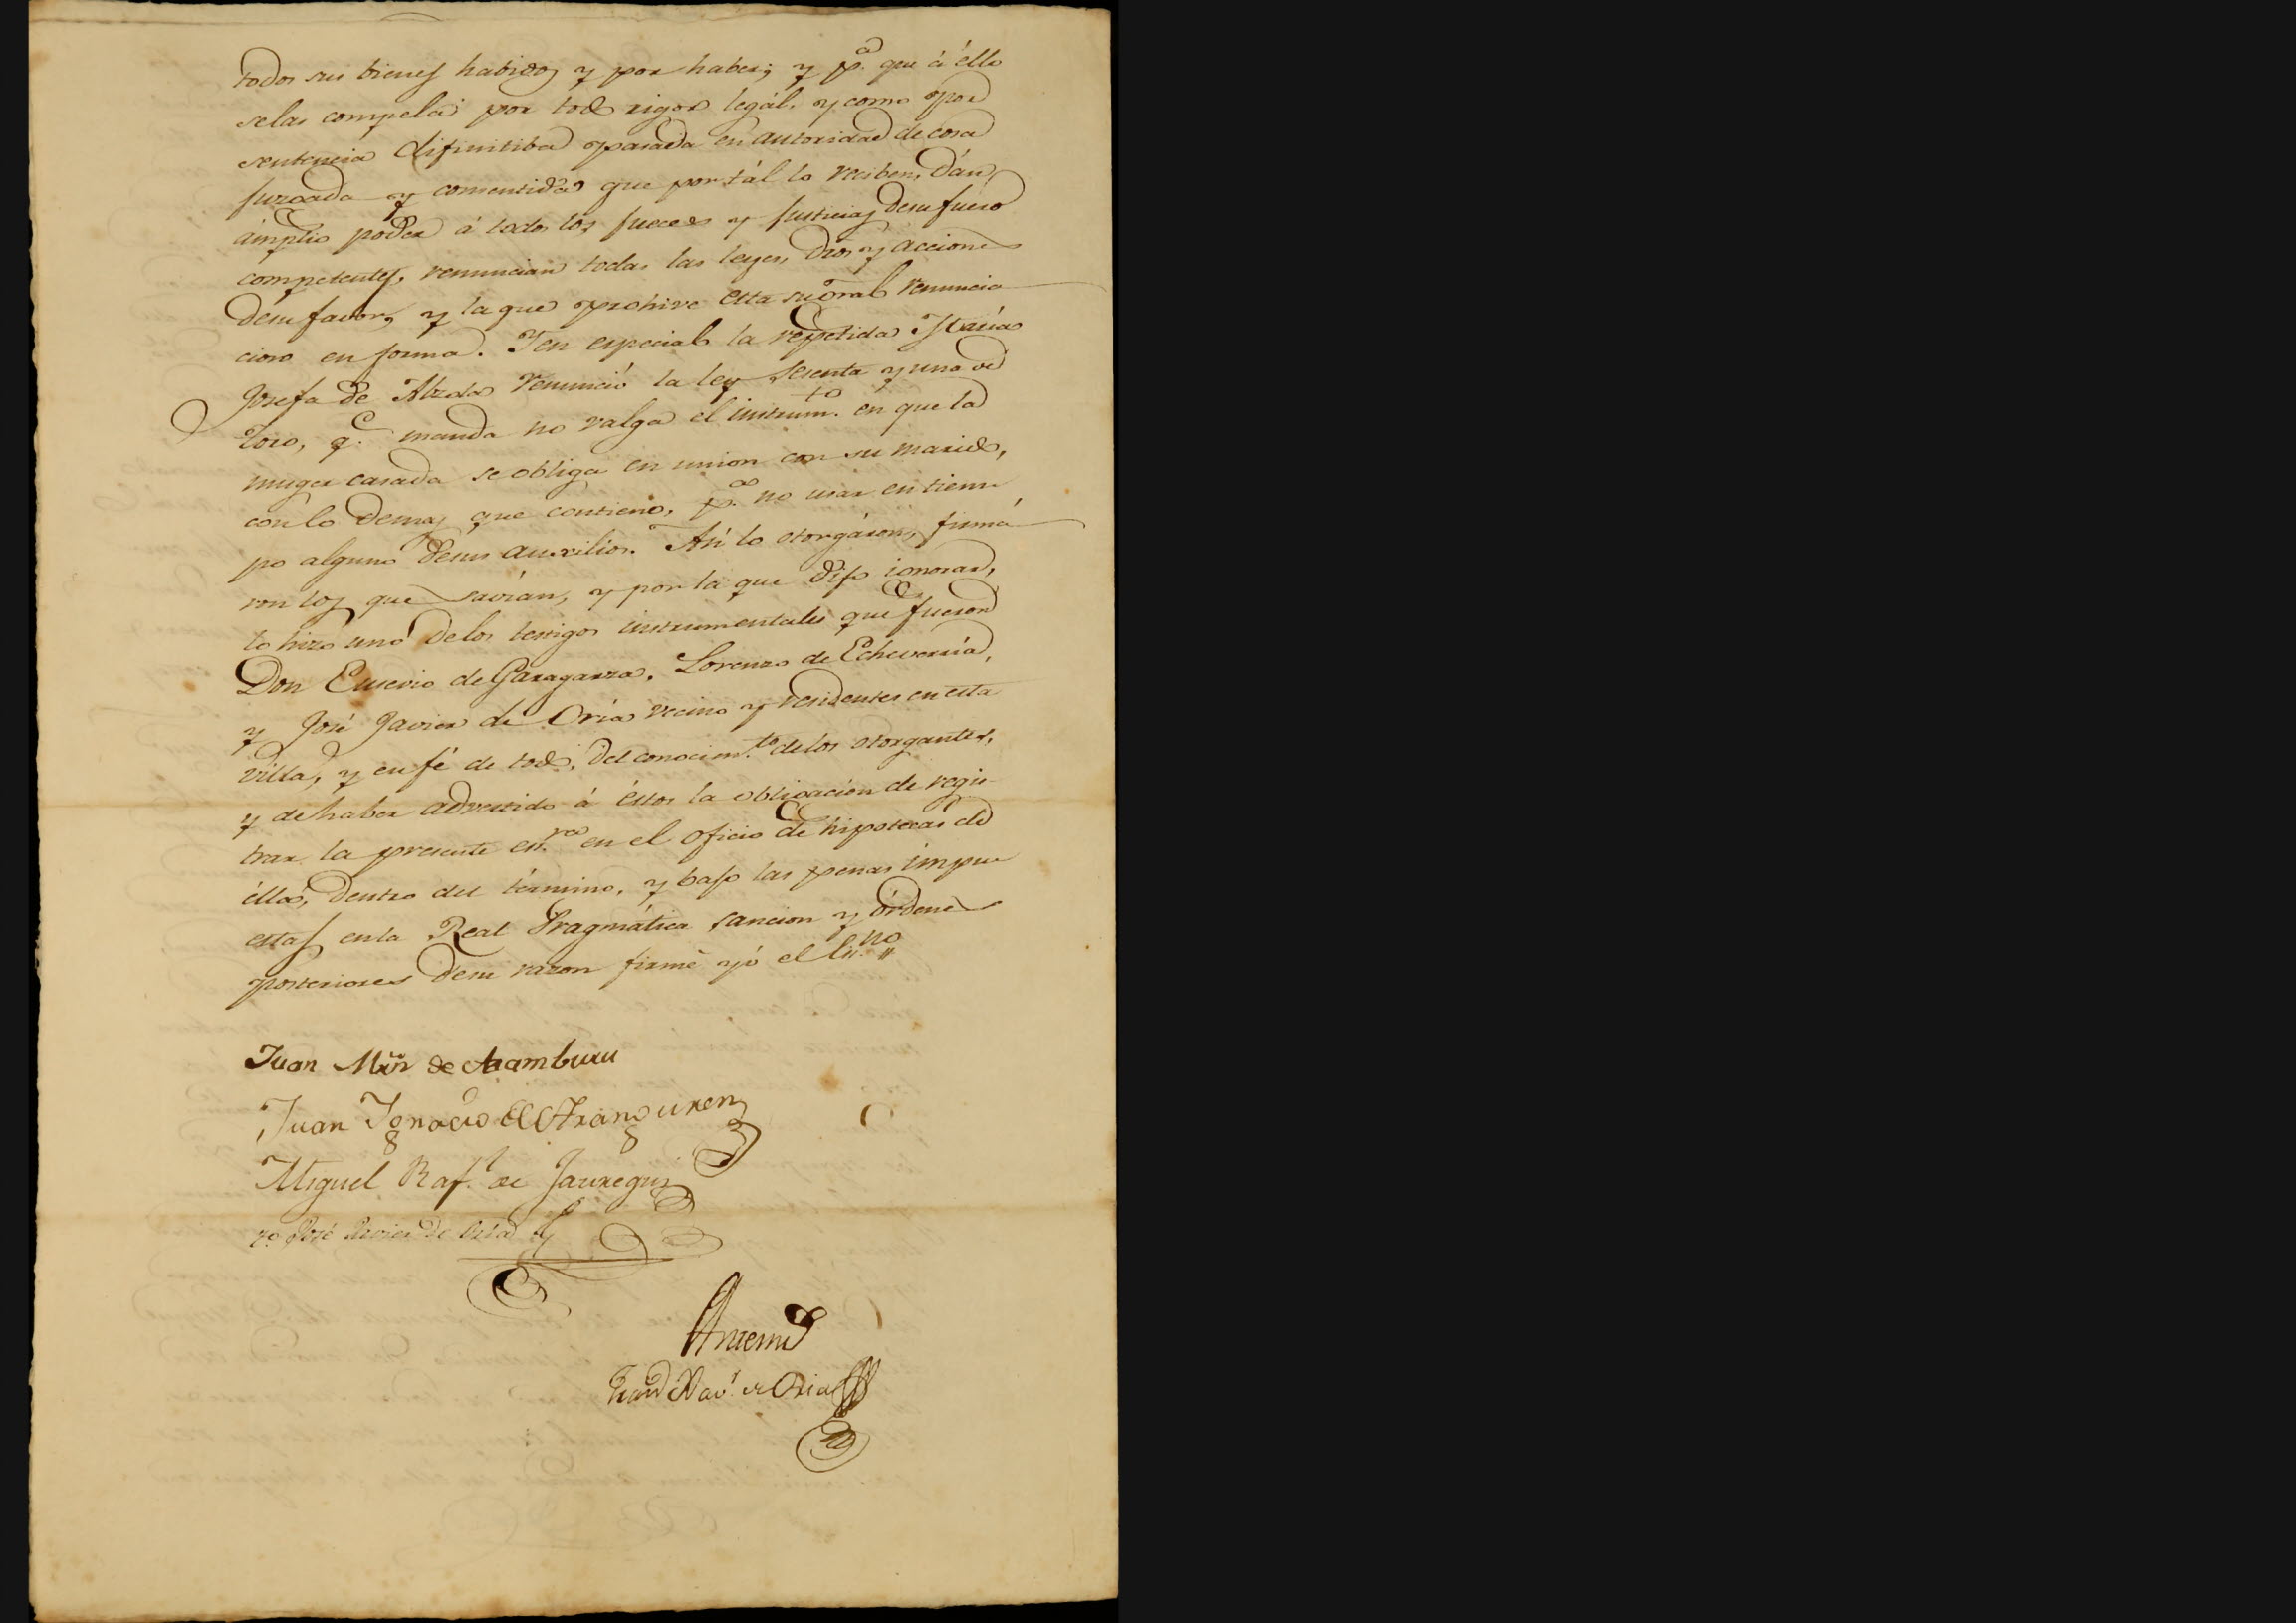 todos sus bienes habidos y por haber; y p.ª que á ello
selas compela por todo rigor legál, y como por
sentencia difinitiba pasada en autoridad de cosa
juzgada y comentida que por tál lo reciben, dán
ámplio poder á todos los jueces y Justicias desu fuero
competentes, renuncian todas las leyes, dros y acciones
desu favor, y la que prohive esta su gral renuncia
cion en forma. Y en especial la repetida María
Josefa de Alzola renunció la ley sesenta y una de
Toro, q.e manda no valga el instrum.to en que la
muger casada se obliga en union con su marido,
con lo demas que contiene, p.ª no usar en tiem
po alguno desus auxilios. Así lo otorgáron, firmá
ron los que savían, y por la que dijo ignorar,
lo hizo uno delos testigos instrumentales que fueron
Don Eusevio de Garagarza, Lorenzo de Echeverría,
y José Javier de Oria vecino y residentes en esta
villa, y en fé de todo, del conocim.to delos otorgantes,
y de haber advertido á éstos la obligación de regis-
trar la presente es.ra en el oficio de hipotecas de
élla, dentro del término, y bajo las penas impu
estas en la Real Pragmática sancion y órdenes
posteriores desu razon firmé yó el Es.no
Juan Mrñ de Aramburu
Juan Ignacio de Aranguren
Miguel Raf.l de Jauregui
t.º José Javier de Oria
Antemi
Juan Xav.r de Oria